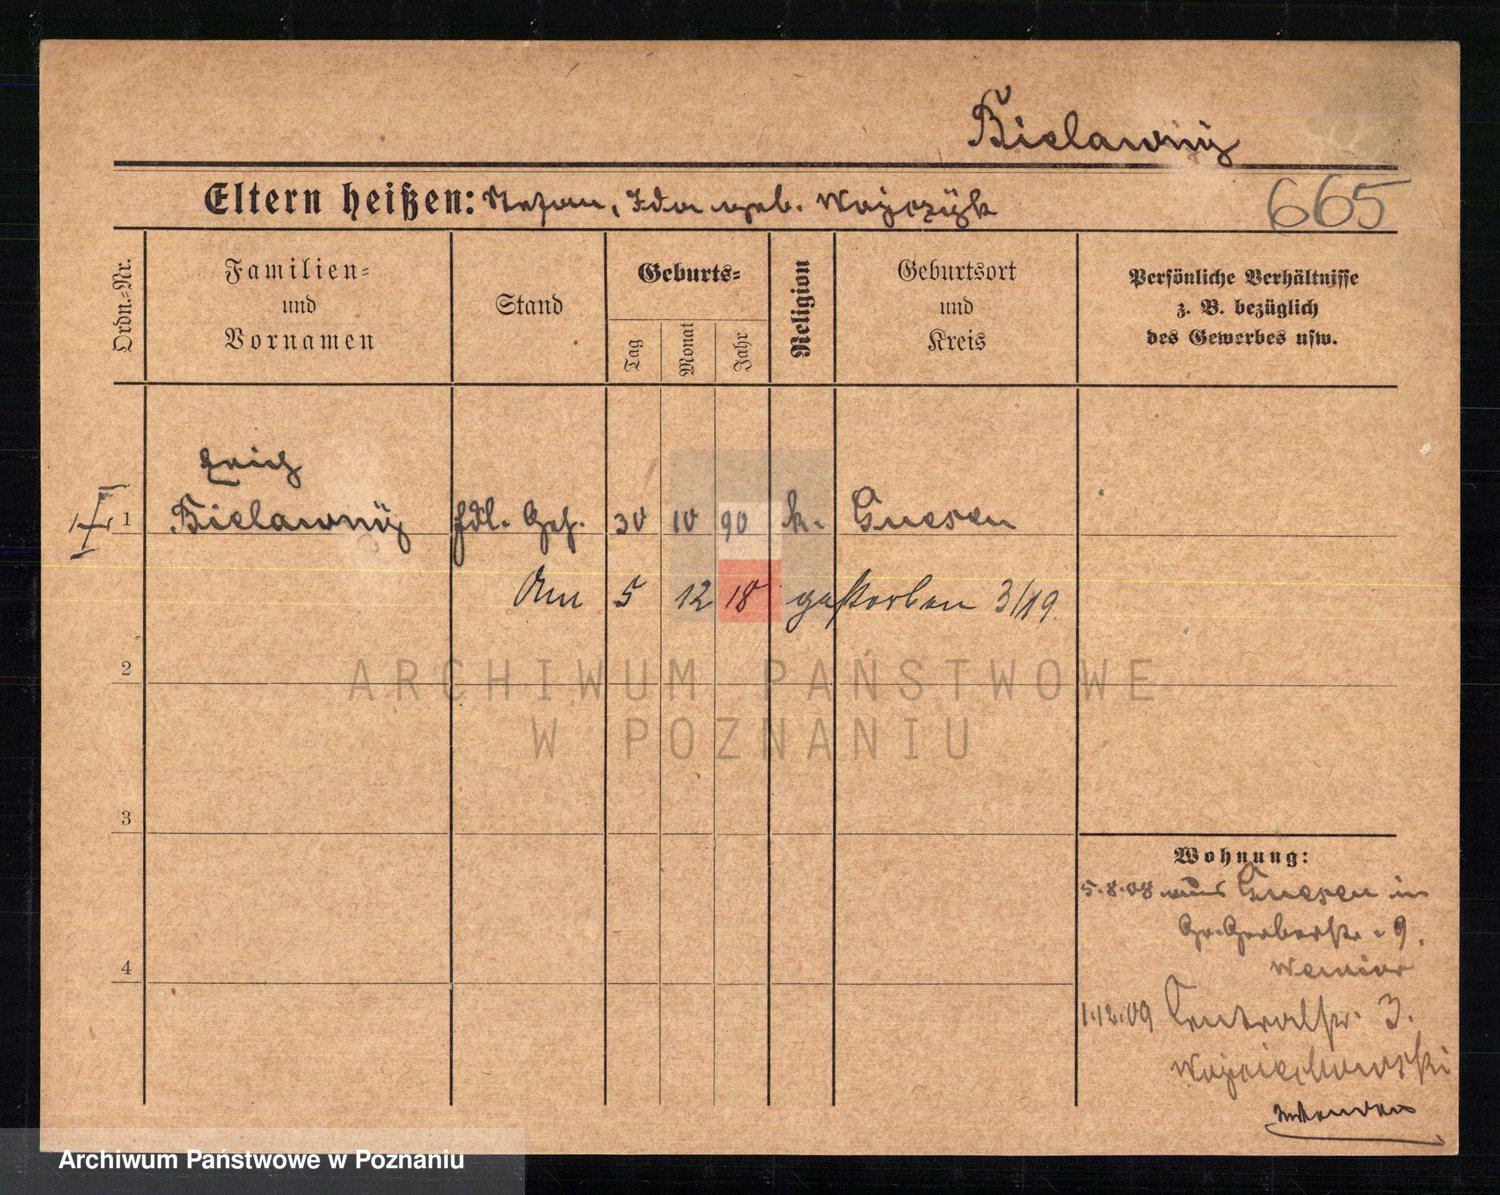 Bielawnÿ
Eltern heißen: Stefan, Ida geb. Woÿczÿk
665
Ordn.-Nr.
Familien-
und
Vornamen
Stand
Geburts-
Tag
Monat
Jahr
Religion
Geburtsort
und
Kreis
Persönliche Verhältnisse
z. B. bezüglich
des Gewerbes usw.
Erich
1 Bielawnÿ hdl. Geh. 30 10 90 k. Gnesen
Am 5 12 18 gestorben 3/19.
2
3
4
Wohnung:
5.8.08 aus Gnesen in
Gr. Gerberstr. 9.
1.12.09 Centralstr. 3.
Woyciechowski
ARCHIWUM PAŃSTWOWE
W POZNANIU
Archiwum Państwowe w Poznaniu